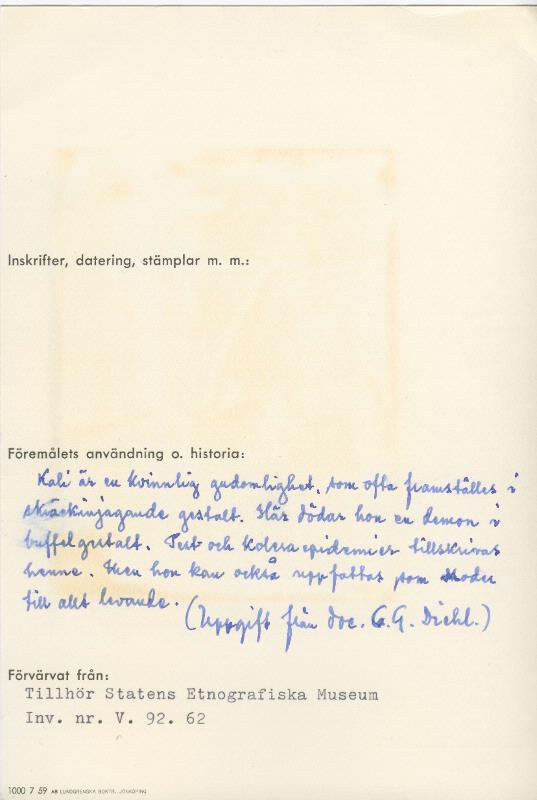 Inskrifter, datering, stämplar m. m.:
Föremålets användning o. historia:
Kali är en kvinnlig gudomlighet, som ofta framställes i
skräckinjagande gestalt. Här dödar hon en demon i
buffelgestalt. Pest och koleraepidemier tillskrivas
henne. Men hon kan också uppfattas som Moder
till allt levande.
(Uppgift från doc. C.G. Diehl.)
Förvärvat från:
Tillhör Statens Etnografiska Museum
Inv. nr. V. 92. 62
1000 7 59 AB LUNDGRENSKA BOKTR. JÖNKÖPING